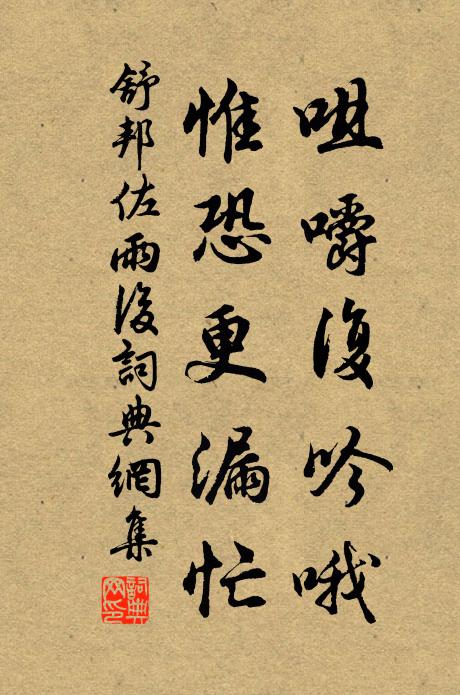 咀嚼復吟哦
惟恐更漏忙
舒邦佐雨後詞典網集
詞典网印